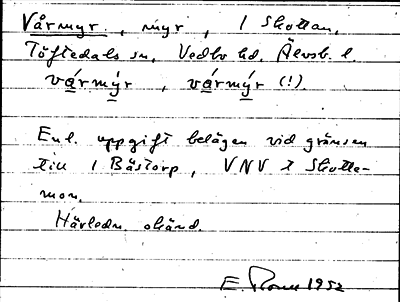 Vårmyr, myr, 1 Skottan,
Töftedals sn, Vedbo hd, Älvsb. l.
vármýr, vármýr (!).
Enl. uppgift belägen vid gränsen
till 1 Båstorp, VNV t Skotte-
mon.
Härledn. okänd.
E. 1952